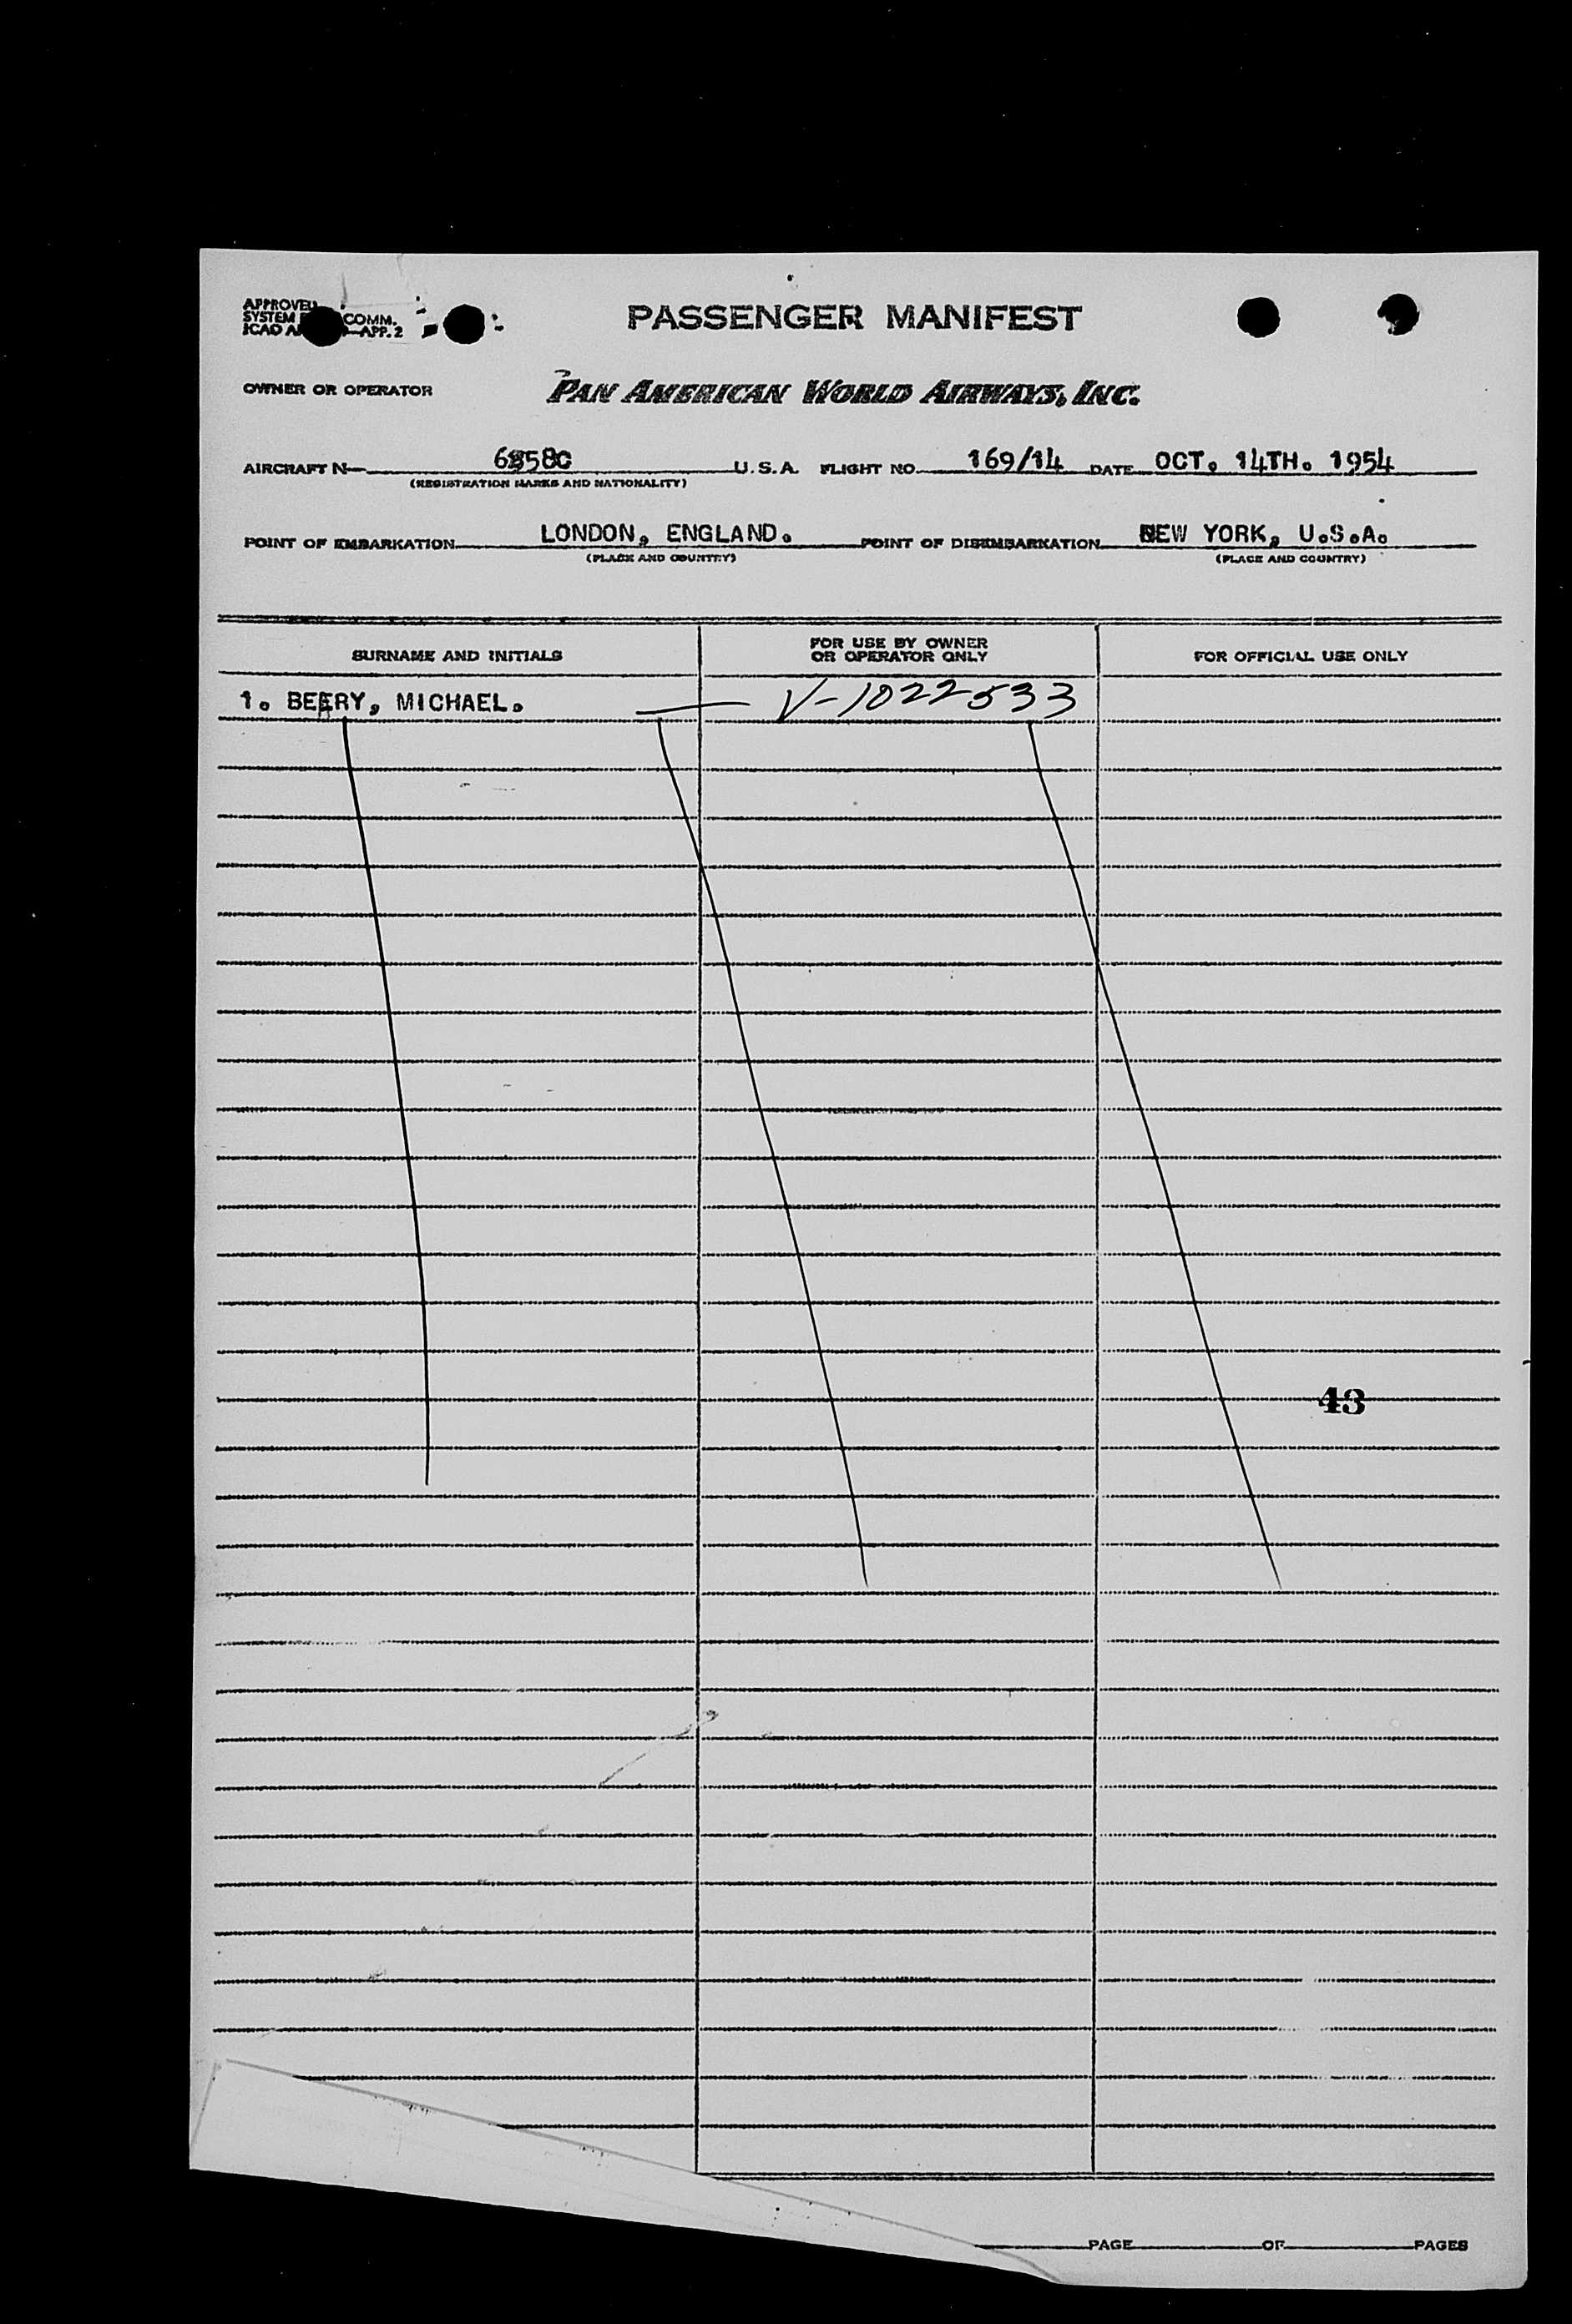 APPROVED
SYSTEM COMM.
ICAO APP. 2
PASSENGER MANIFEST
OWNER OR OPERATOR PAN AMERICAN WORLD AIRWAYS, INC.
AIRCRAFT N U.S.A. FLIGHT NO. 169/14 DATE OCT. 14TH. 1954
(REGISTRATION MARKS AND NATIONALITY)
POINT OF EMBARKATION LONDON, ENGLAND. POINT OF DISEMBARKATION NEW YORK, U.S.A.
(PLACE AND COUNTRY) (PLACE AND COUNTRY)
SURNAME AND INITIALS FOR USE BY OWNER OR OPERATOR ONLY FOR OFFICIAL USE ONLY
1. BEERY, MICHAEL. V-1022533
43
PAGE OF PAGES